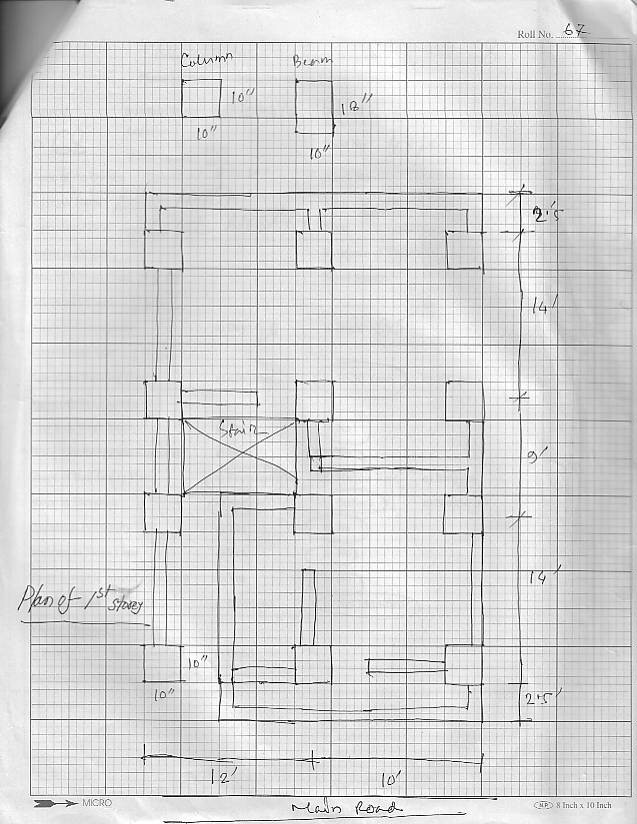 Roll No. 67
Column
Beam
10"
10"
18"
10"
2'5
14'
Stair
9'
14'
Plan of 1st Storey
10"
10"
2'5'
12'
10'
Main Road
MICRO
N.P. 8 Inch x 10 Inch